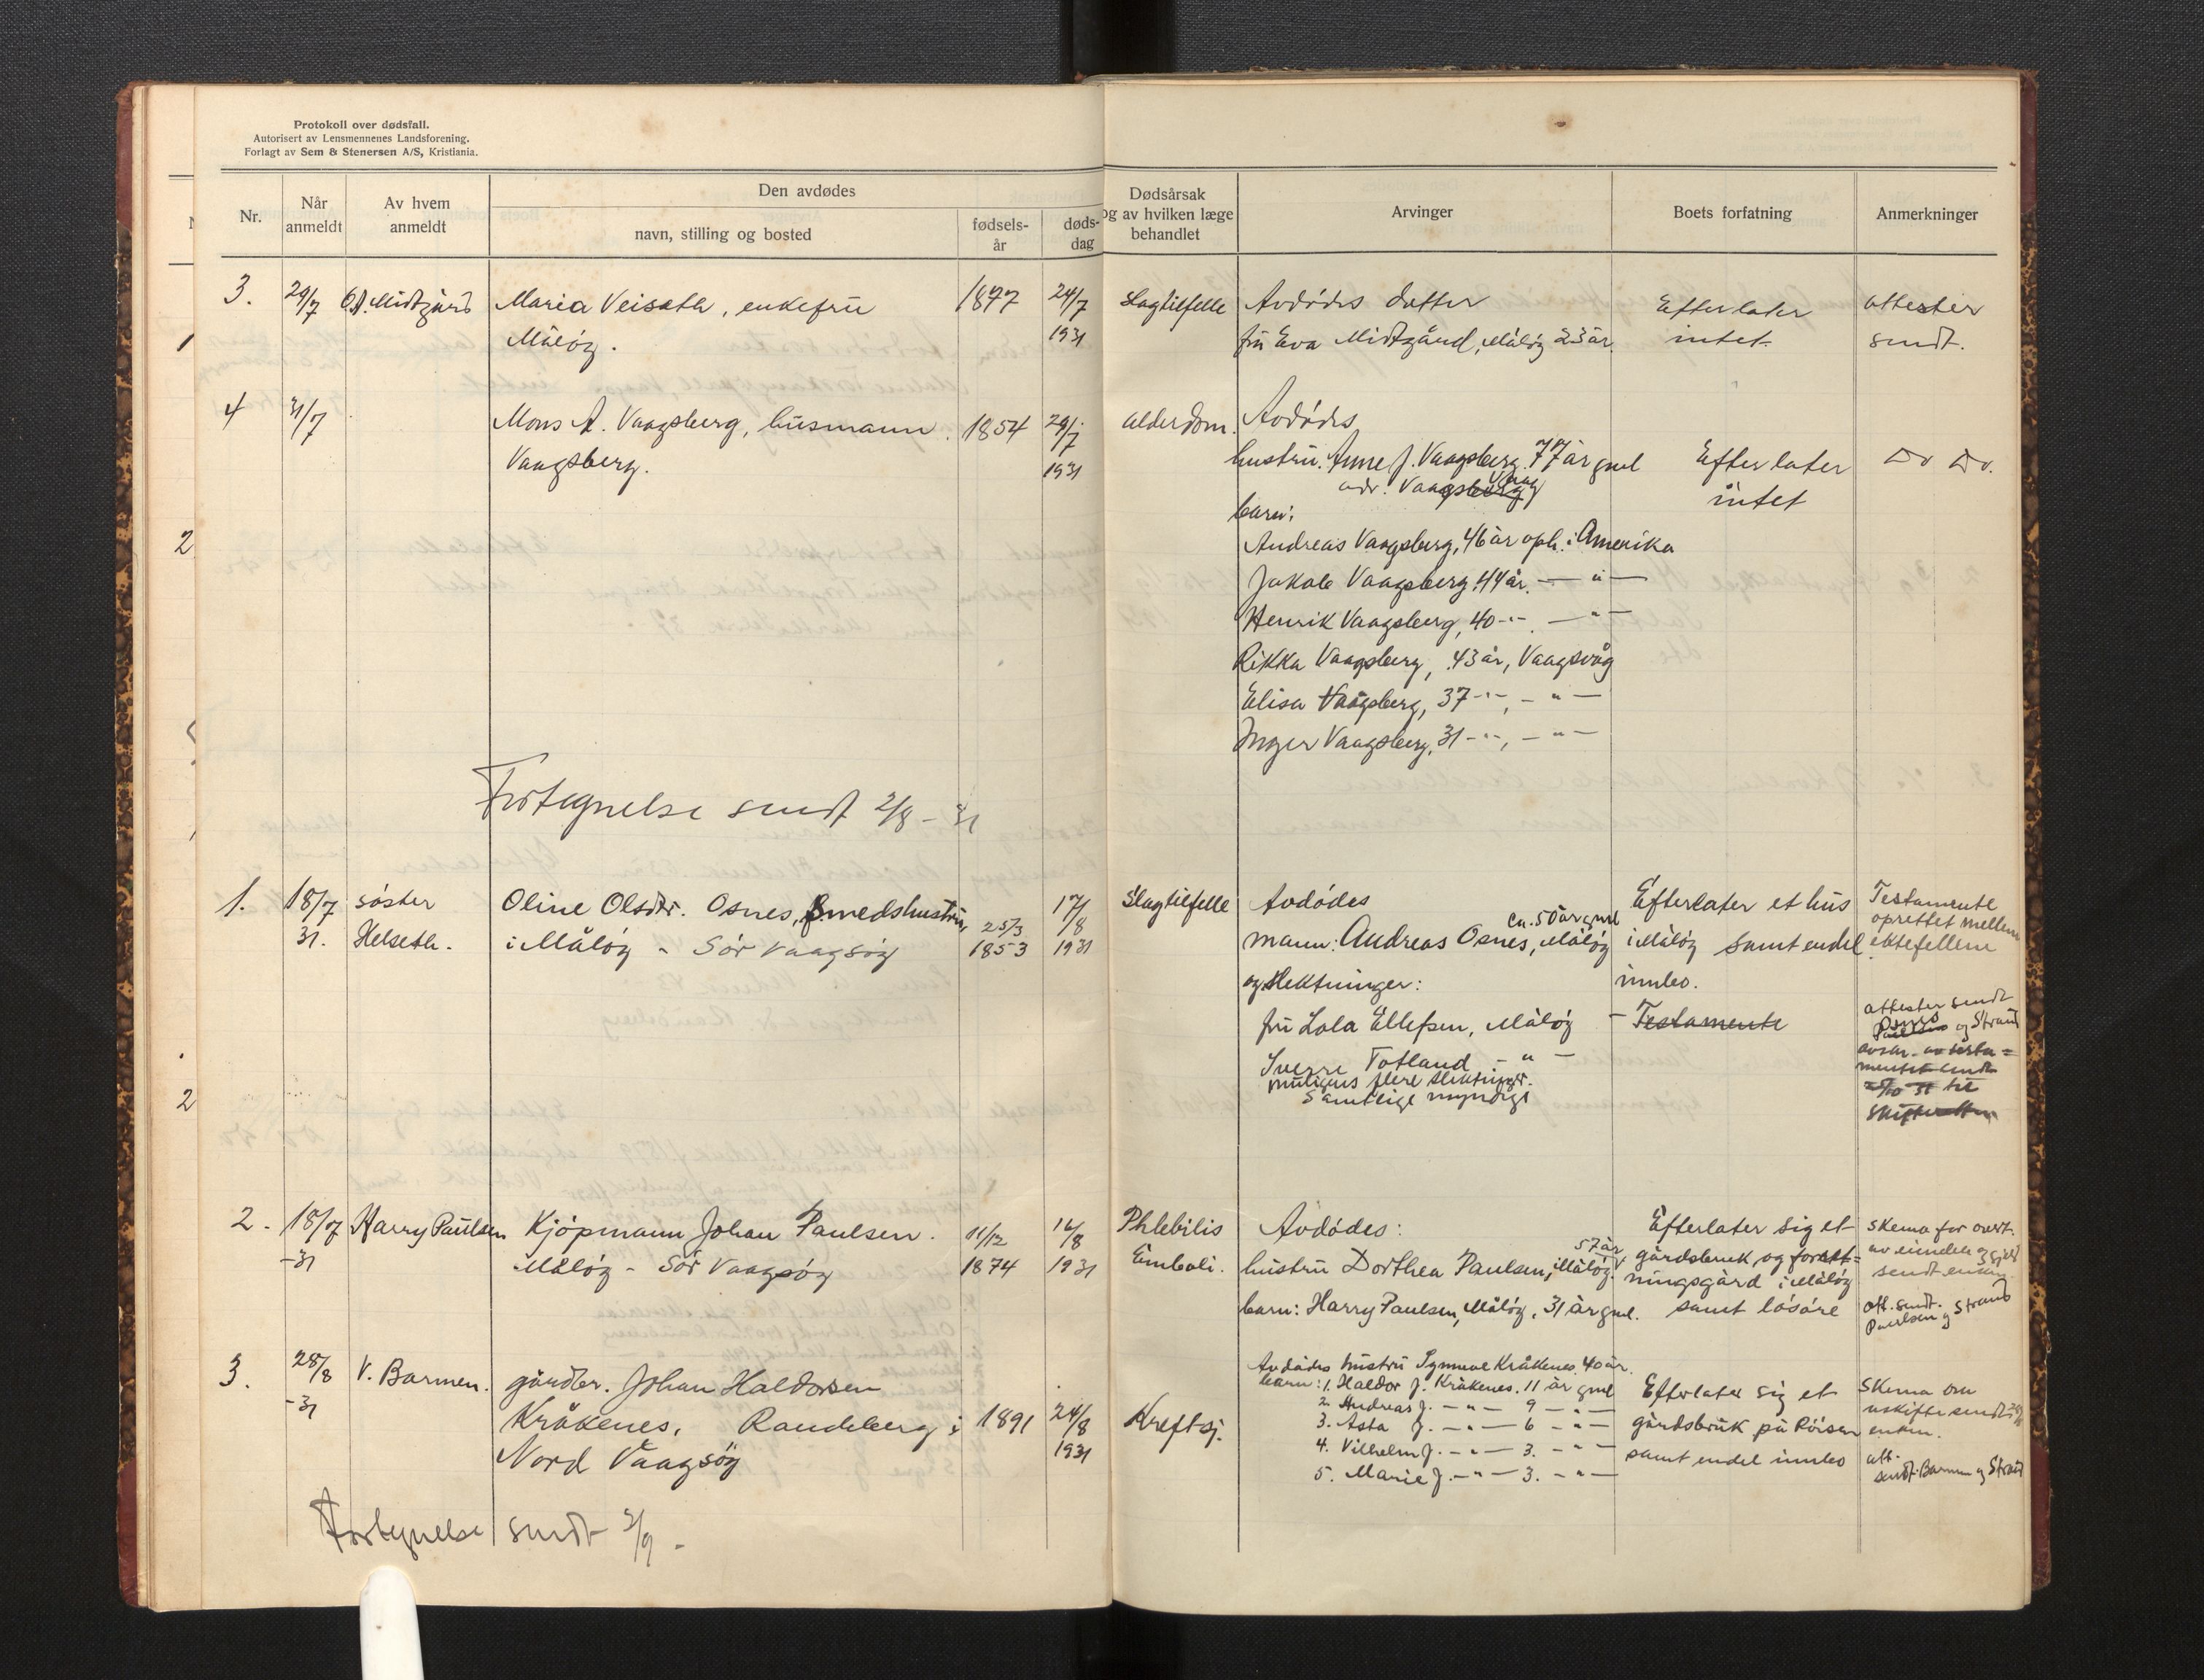 Protokoll over dødsfall.
Autorisert av Lensmennenes Landsforening.
Forlagt av Sem & Stenersen A/S, Kristiania.
Nr.
Når anmeldt
Av hvem anmeldt
Den avdødes
navn, stilling og bosted
fødsels-år
døds-dag
Dødsårsak
og av hvilken læge
behandlet
Arvinger
Boets forfatning
Anmerkninger
3. 29/7 Midtgård Maria Veiseth, enkefru 1877 24/7 Slagtilfelle Avdødes datter Efterlater attester
Måløy. 1931 fru Eva Midtgård, Måløy 23 år intet. sendt.
4 31/7 Mons A. Vaagsberg, husmann. 1854 29/7 alderdom. Avdødes
Vaagsberg. 1931 hustru. Anne J. Vaagsberg. 77 år gml Efterlater Do Do.
adr. Vaagsberg intet
barn:
Andreas Vaagsberg, 46 år oph. i Amerika
Jakob Vaagsberg 44 år. — " —
Henrik Vaagsberg, 40 -"- — " —
Rikka Vaagsberg, 43 år, Vaagsvåg
Elisa Vaagsberg, 37 -"-, — " —
Inger Vaagsberg, 31 -"-, — " —
Fortegnelse sendt 2/8 - 31
1. 18/7 søster Oline Olsdtr. Osnes, smedshustru, 25/3 17/8 Slagtilfelle Avdødes Efterlater et hus Testamente
oprettet mellem
31. Helseth. i Måløy - Sør Vaagsøy 1853 1931 mann: Andreas Osnes, Måløy ca. 50 år gml i Måløy samt endel ektefellene
og slektninger: innbo.
fru Lola Ellefsen, Måløy - Testamente attester sendt
Osnes og Strand
Sverre Totland — " —
muligens flere slektninger.
Samtlige myndige
skifteretten
2. 18/8 Harry Paulsen Kjøpmann Johan Paulsen. 11/12 16/8 Phlebilis Avdødes: Efterlater sig et skema for overt.
-31 Måløy - Sør Vaagsøy 1874 1931 Emboli. hustru Dorthea Paulsen, Måløy. 57 år gårdsbruk og forret= av eiendele og gjeld
ningsgård i Måløy sendt enken
barn: Harry Paulsen, Måløy, 31 år gml. samt løsøre att. sendt.
Paulsen og Strand
3. 28/8 V. Barmen. gårdbr. Johan Haldorsen Avdødes hustru Synneve Kråkenes 40 år
-31 Kråkenes, Raudeberg i 1891 24/8 Kreftsj. barn: 1. Haldor J. Kråkenes. 11 år gml Efterlater sig et Skema om
Nord Vaagsøy 1931 2. Andreas J. — " — 9 — " — uskifte sendt
3. Asta J. — " — 6 — " — gårdsbruk på enken.
4. Vilhelm J. — " — 3. — " — samt endel innbo att.
5. Marie J. — " — 3. — " — sendt. Barmen og Strand
Fortegnelse sendt 2/9 -